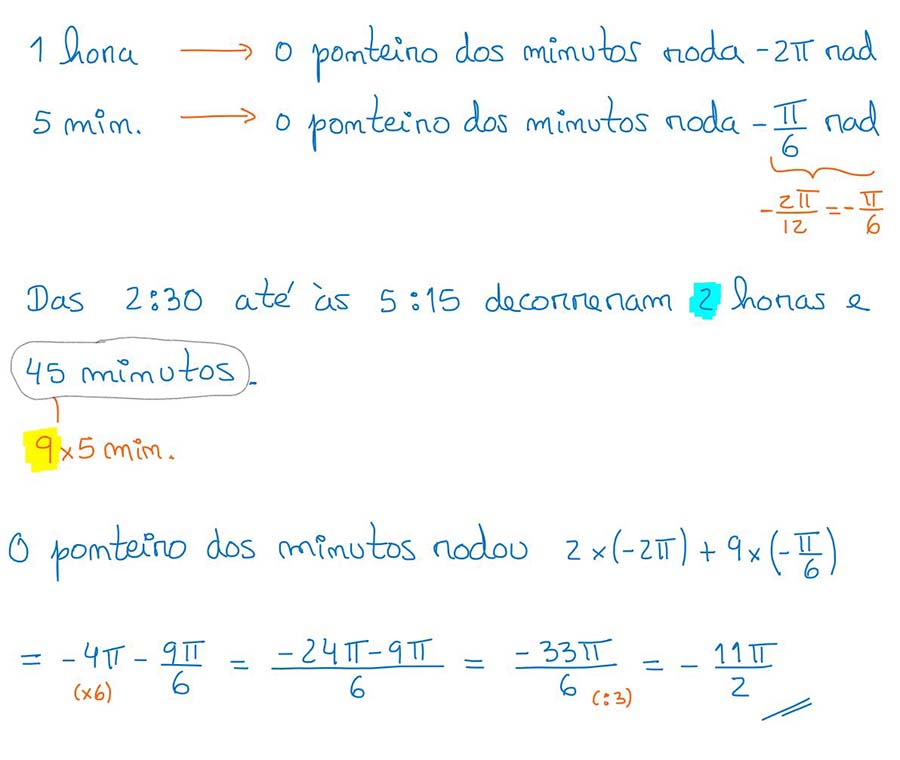 1 hora → o ponteiro dos minutos roda -2π rad
5 min. → o ponteiro dos minutos roda -π/6 rad
-2π/12 = -π/6
Das 2:30 até às 5:15 decorreram 2 horas e
45 minutos.
9×5 min.
O ponteiro dos minutos rodou 2×(-2π) + 9×(-π/6)
= -4π - 9π/6 = (-24π-9π)/6 = -33π/6 = -11π/2
(×6) (:3)